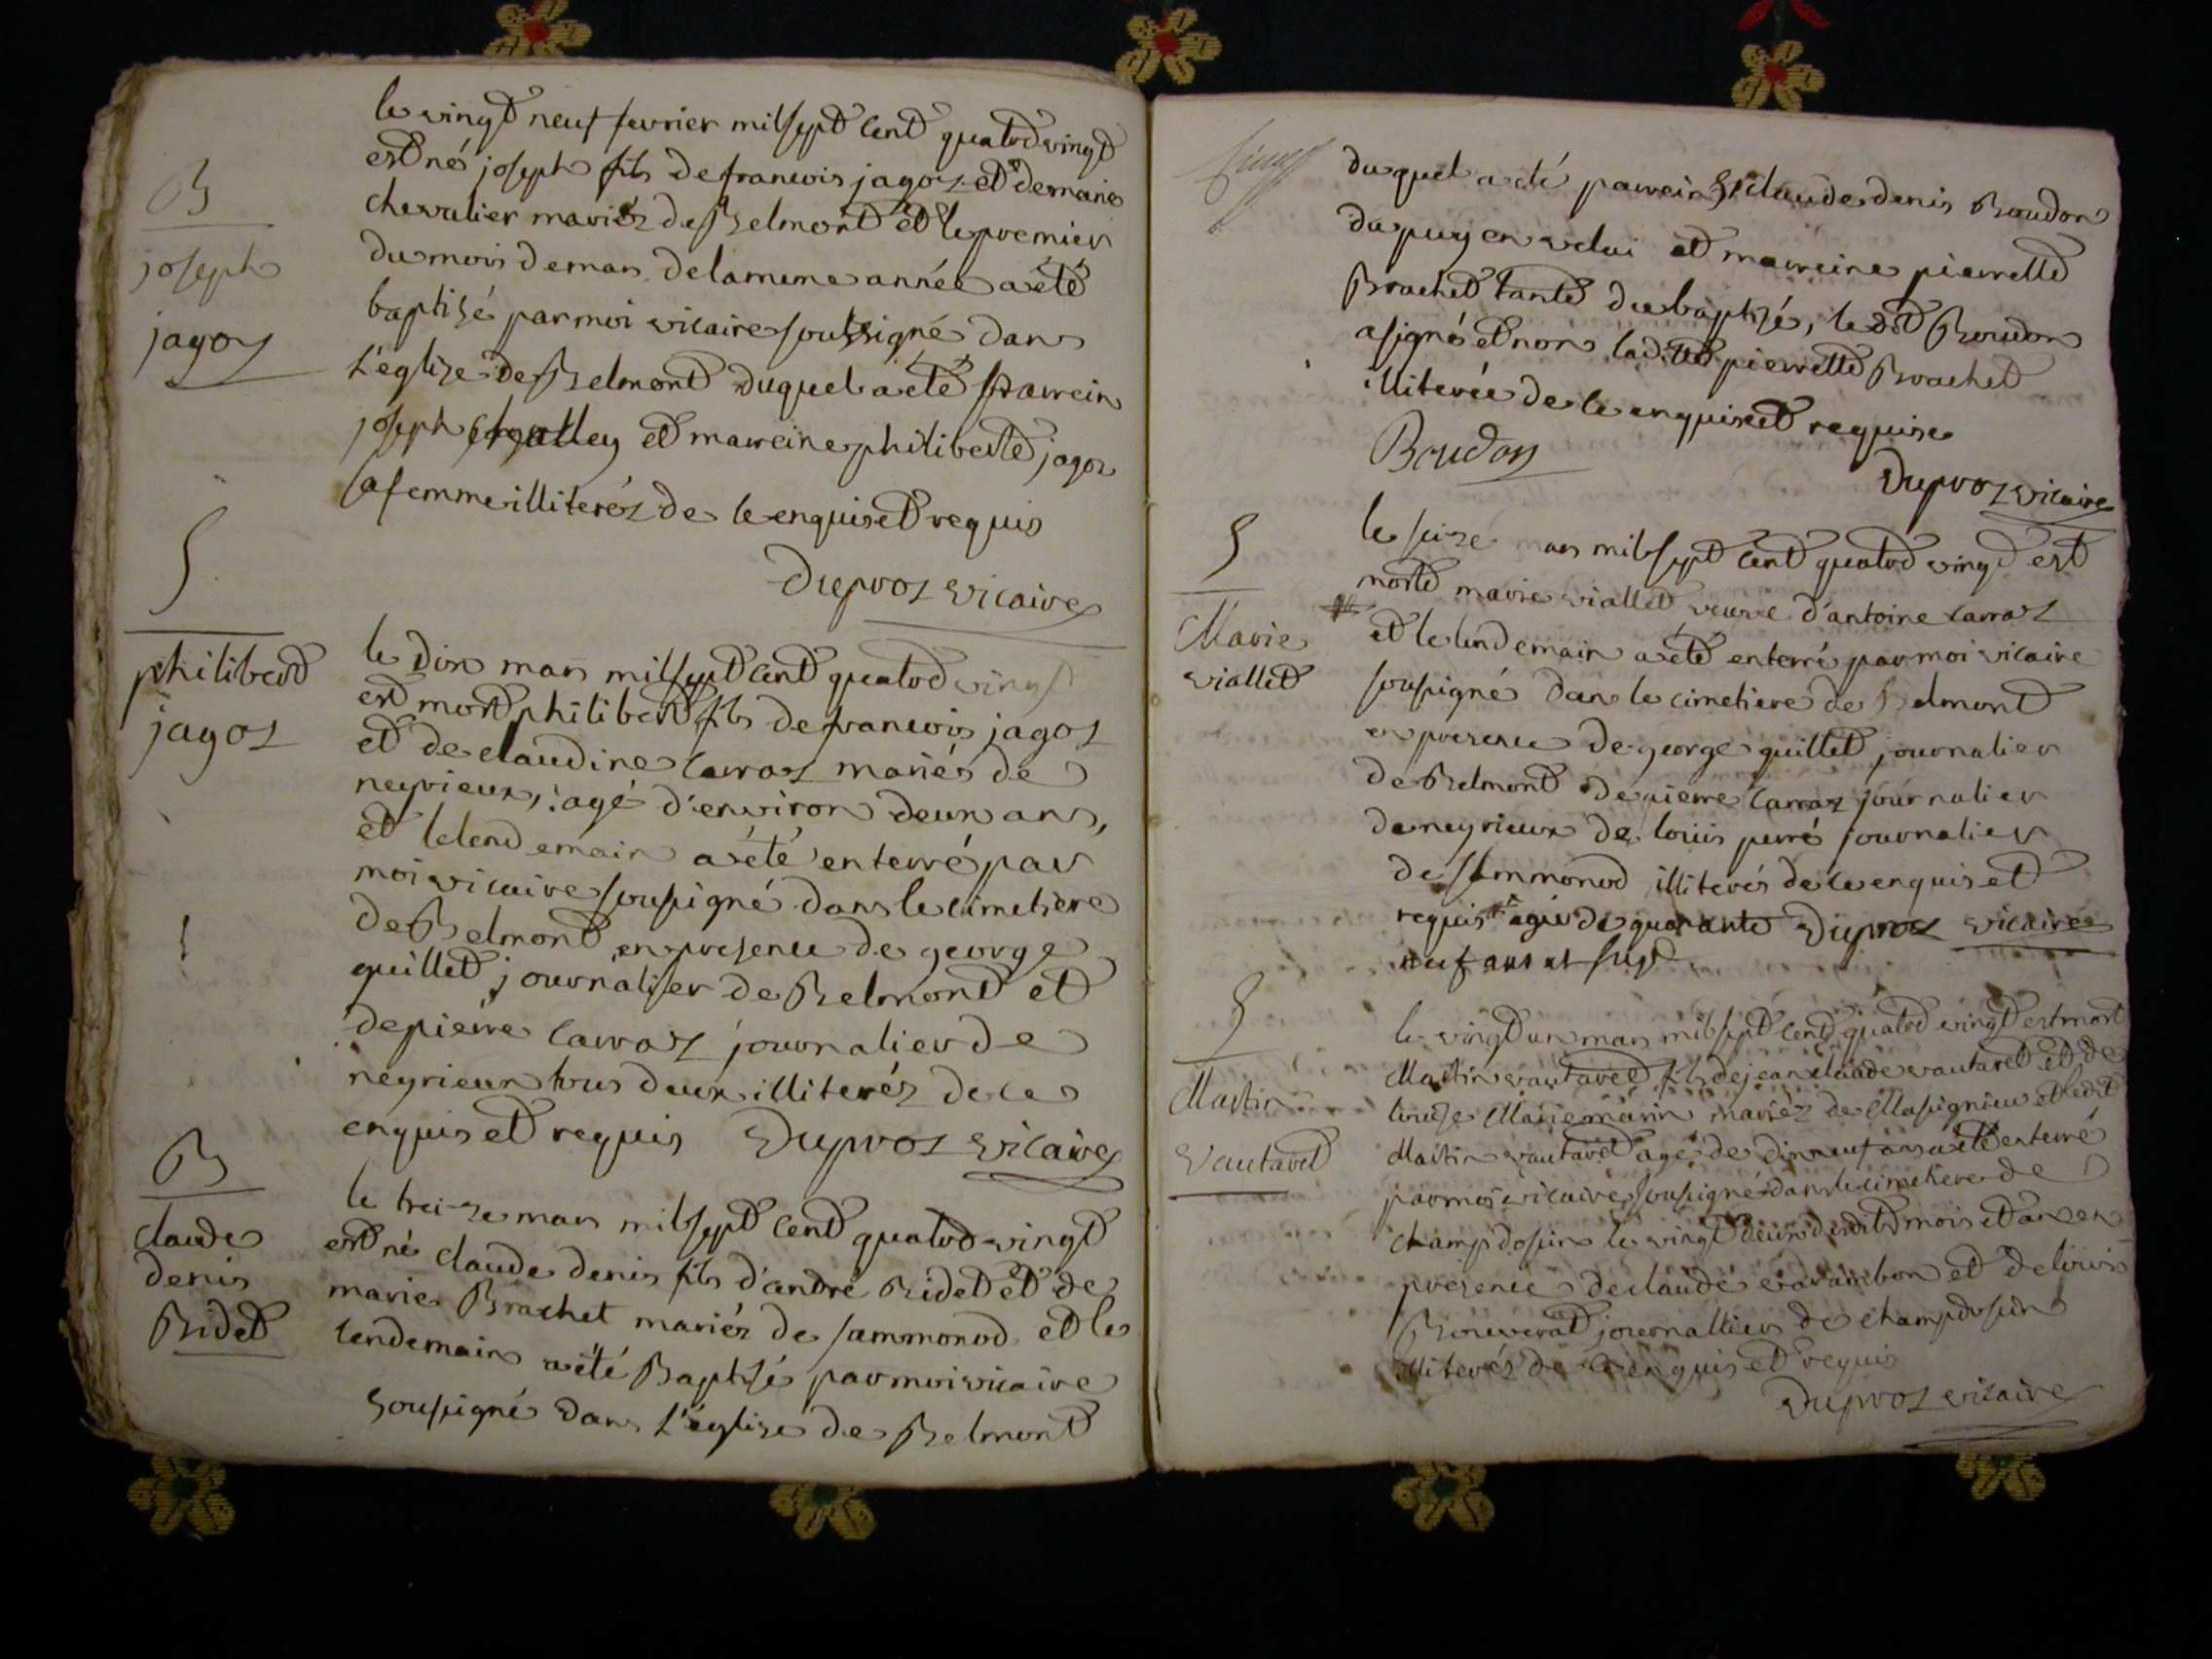 B
joseph
jagoz
le vingt neuf fevrier mil sept cent quatre vingt
est né joseph fils de francois jagoz et de marie
chevalier mariéz de Belmont et le premier
du mois de mars de la meme année a été
baptizé par moi vicaire soussigné dans
L'églize de Belmont duquel a été parrein
joseph et marreine philiberte jagoz
sa femme illiteréz de ce enquis et requis
Duproz vicaire
S
philibert
jagoz
le dix mars mil sept cent quatre vingt
est mort philibert fils de francois jagoz
et de claudine carraz mariés de
neyrieux, agé d'environ deux ans,
et lelendemain a été enterré par
moi vicaire sousigné dans le cimetiere
de Belmont en presence de george
guillet journalier de Belmont et
de pierre carraz journalier de
neyrieux tous deux illiteréz de ce
enquis et requis Duproz vicaire
B
claude
denis
Ridet
le treize mars mil sept cent quatre vingt
est né claude denis fils d'andré Ridet et de
marie Brachet mariéz de sammonod et le
lendemain a été Baptizé par moi vicaire
sousigné dans L'églize de Belmont
duquel a été parrein Sr claude denis Boudon
du puy en velai et marreine pierrette
Brachet tante du baptizé, le dit Boudon
a signé et non la ditte pierrette Brachet
illiterée de ce enquise et requise
Boudon
Duproz vicaire
S
Marie
viallet
le seize mars mil sept cent quatre vingt est
morte marie viallet veuve d'antoine carraz
et le lendemain a été enterré par moi vicaire
sousigné dans le cimetiere de Belmont
en presence de george guillet journalier
de Belmont de pierre carraz journalier
de neyrieux de louis perré journalier
de sammonod illiterés de ce enquis et
requis agée de quarante Duproz vicaire
neuf ans et sept
S
Martin
Vautaret
le vingt un mars mil sept cent quatre vingt est mort
Martin vautaret fils de jean claude vautaret et de
Marie marin mariéz de Massignieu et ledit
Martin vautaret agé de dix neuf ans a été enterré
par moi vicaire sousigné dans le cimetiere de
champdosin le vingt deux du dit mois et an en
presence de claude et de louis
Bouverat journalliers de champdosin
illiteréz de ce enquis et requis
Duproz vicaire